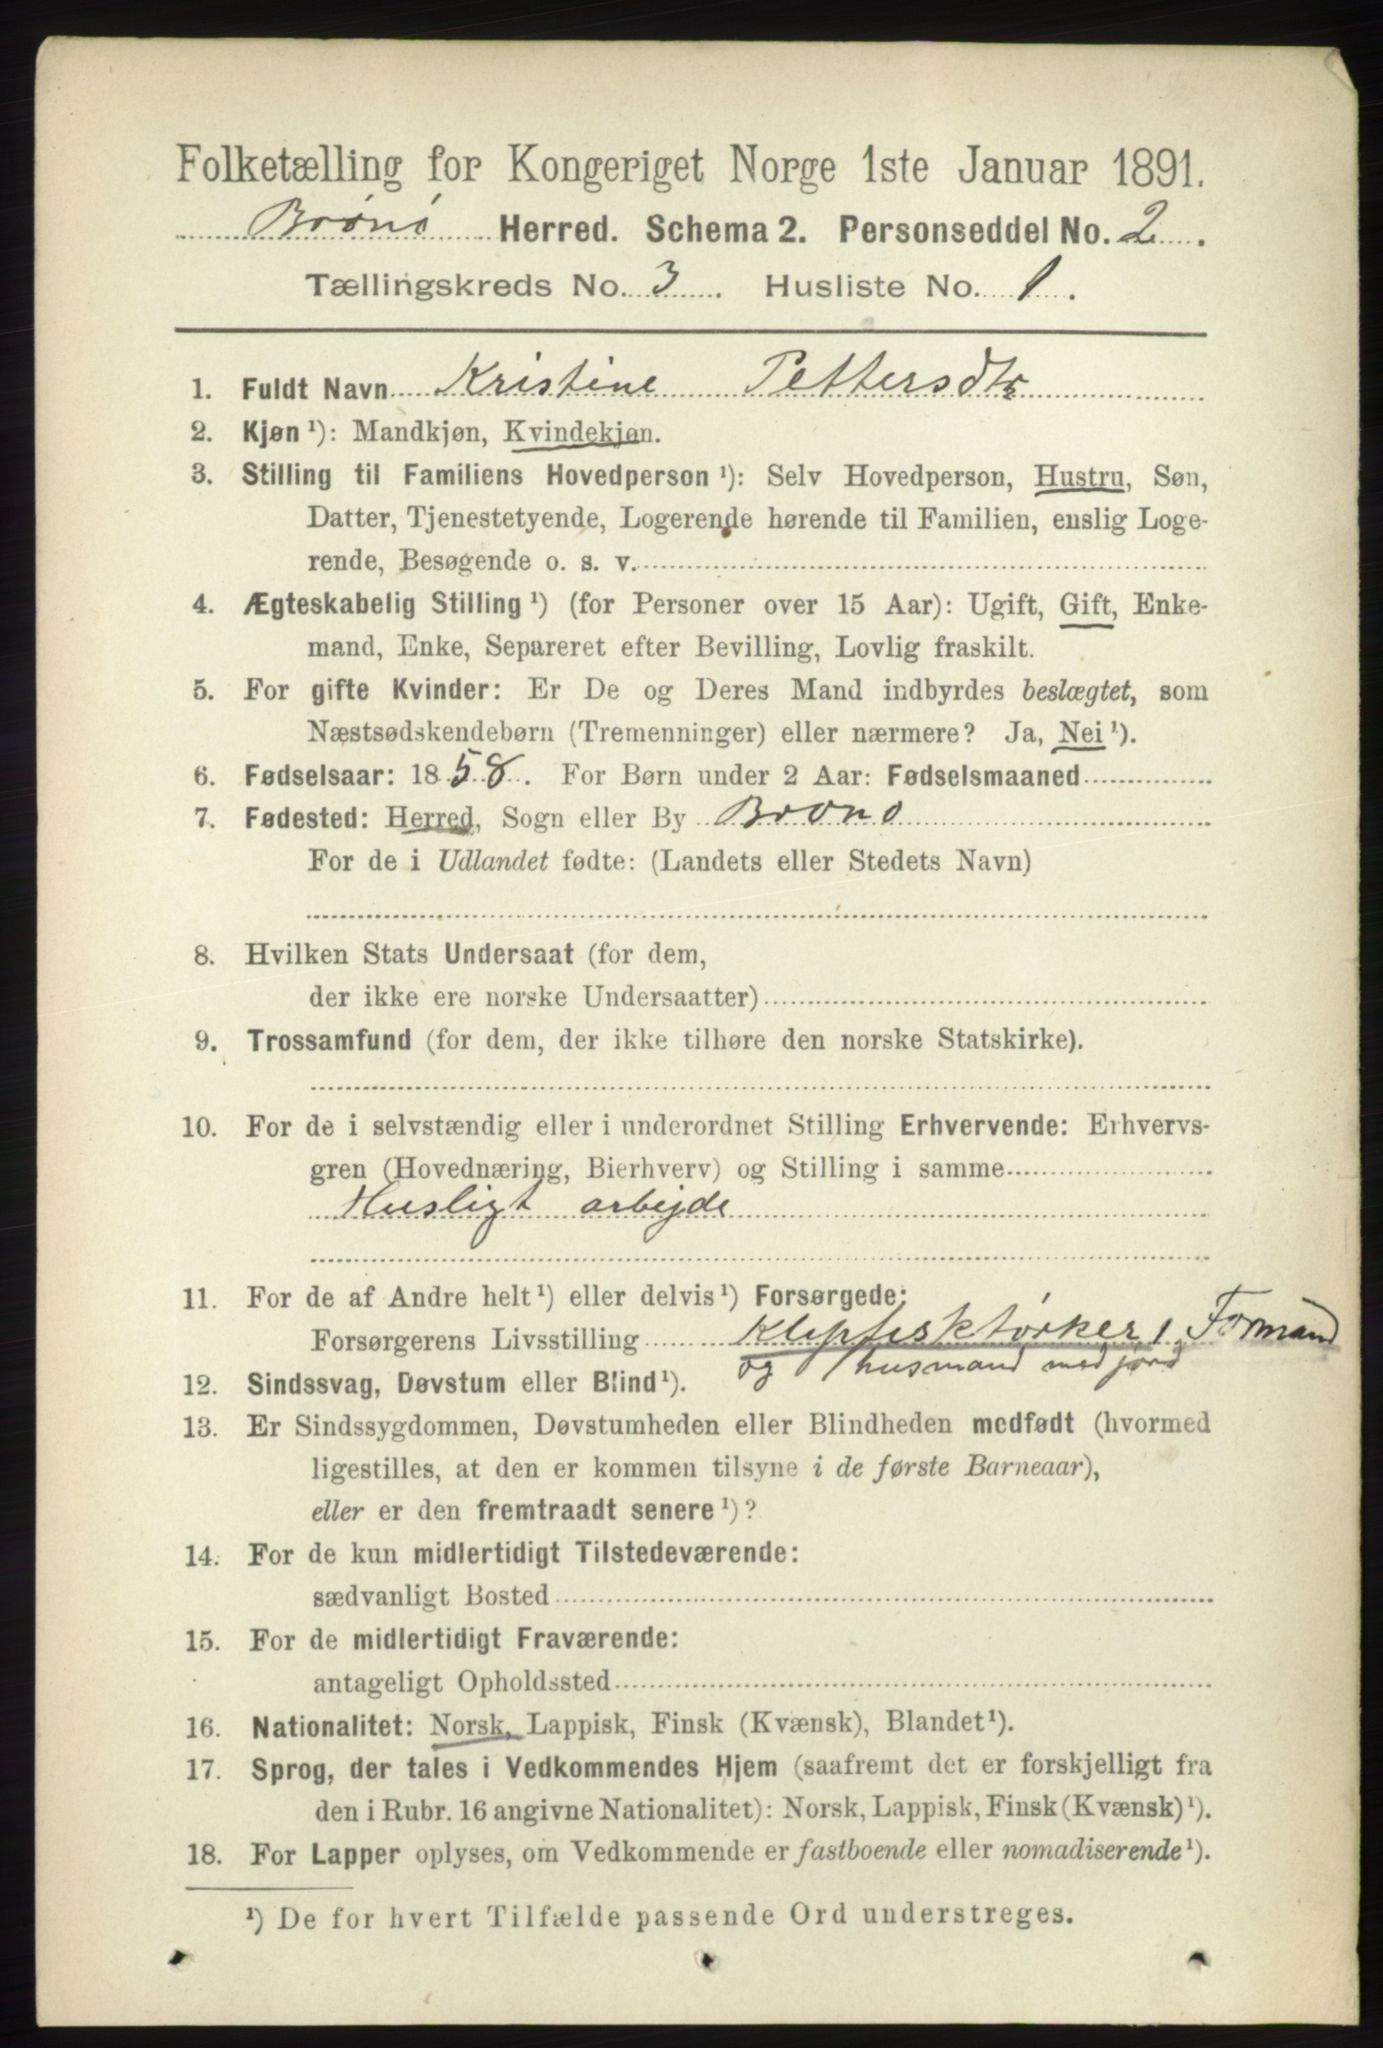 Folketælling for Kongeriget Norge 1ste Januar 1891.
Brønø Herred. Schema 2. Personseddel No. 2.
Tællingskreds No. 3. Husliste No. 1.
1. Fuldt Navn Kristine Pettersdtr
2. Kjøn¹): Mandkjøn, Kvindekjøn.
3. Stilling til Familiens Hovedperson¹): Selv Hovedperson, Hustru, Søn,
Datter, Tjenestetyende, Logerende hørende til Familien, enslig Loge-
rende, Besøgende o. s. v.
4. Ægteskabelig Stilling¹) (for Personer over 15 Aar): Ugift, Gift, Enke-
mand, Enke, Separeret efter Bevilling, Lovlig fraskilt.
5. For gifte Kvinder: Er De og Deres Mand indbyrdes beslægtet, som
Næstsødskendebørn (Tremenninger) eller nærmere? Ja, Nei¹).
6. Fødselsaar: 1858. For Børn under 2 Aar: Fødselsmaaned
7. Fødested: Herred, Sogn eller By Brønø
For de i Udlandet fødte: (Landets eller Stedets Navn)
8. Hvilken Stats Undersaat (for dem,
der ikke ere norske Undersaatter)
9. Trossamfund (for dem, der ikke tilhøre den norske Statskirke).
10. For de i selvstændig eller i underordnet Stilling Erhvervende: Erhvervs-
gren (Hovednæring, Bierhverv) og Stilling i samme
Husligt arbejde
11. For de af Andre helt¹) eller delvis¹) Forsørgede:
Forsørgerens Livsstilling Klipfisktørker, Formand
og husmand med jord
12. Sindssvag, Døvstum eller Blind¹).
13. Er Sindssygdommen, Døvstumheden eller Blindheden medfødt (hvormed
ligestilles, at den er kommen tilsyne i de første Barneaar),
eller er den fremtraadt senere¹)?
14. For de kun midlertidigt Tilstedeværende:
sædvanligt Bosted
15. For de midlertidigt Fraværende:
antageligt Opholdssted
16. Nationalitet: Norsk, Lappisk, Finsk (Kvænsk), Blandet¹).
17. Sprog, der tales i Vedkommendes Hjem (saafremt det er forskjelligt fra
den i Rubr. 16 angivne Nationalitet): Norsk, Lappisk, Finsk (Kvænsk)¹).
18. For Lapper oplyses, om Vedkommende er fastboende eller nomadiserende¹).
¹) De for hvert Tilfælde passende Ord understreges.